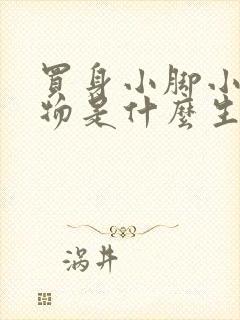 買身小脚小
物是什麼生
涡井